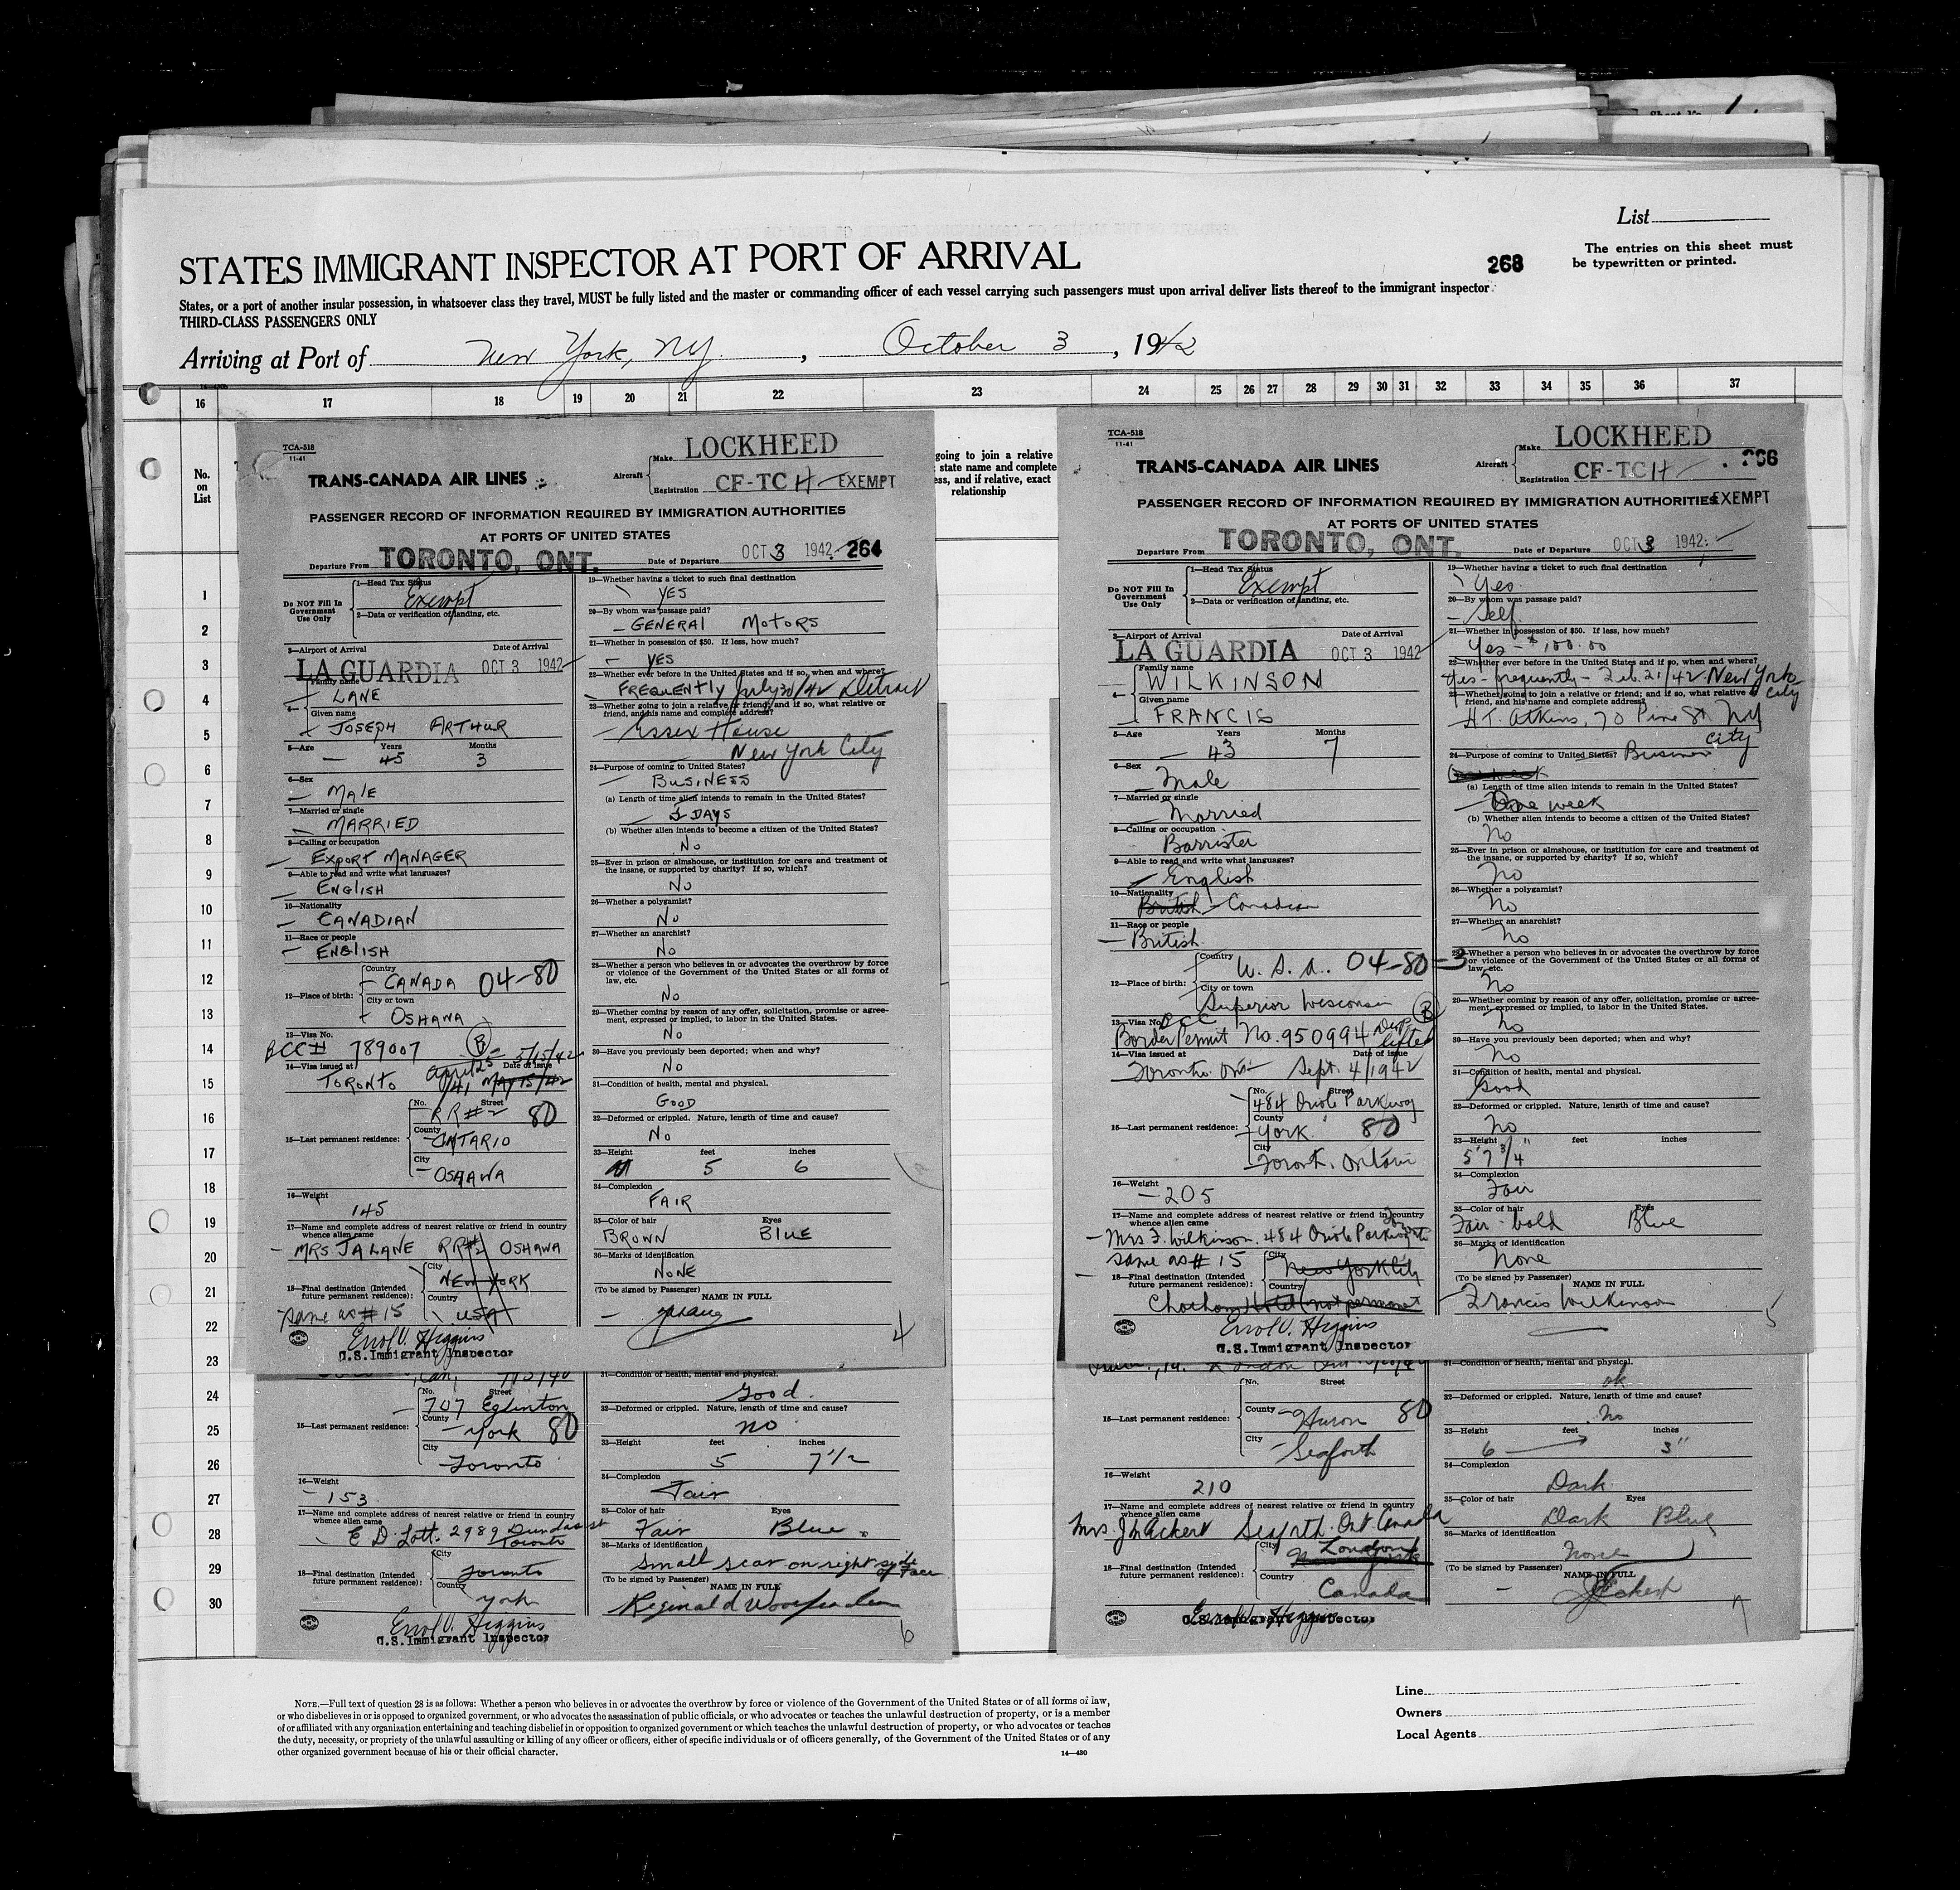 List
STATES IMMIGRANT INSPECTOR AT PORT OF ARRIVAL
268
The entries on this sheet must
be typewritten or printed.
States, or a port of another insular possession, in whatsoever class they travel, MUST be fully listed and the master or commanding officer of each vessel carrying such passengers must upon arrival deliver lists thereof to the immigrant inspector
THIRD-CLASS PASSENGERS ONLY
Arriving at Port of New York, NY. , October 3 , 1942
16 17 18 19 20 21 22 23 24 25 26 27 28 29 30 31 32 33 34 35 36 37
No.
on
List
going to join a relative
state name and complete
ess, and if relative, exact
relationship
1
2
3
4
5
6
7
8
9
10
11
12
13
14
15
16
17
18
19
20
21
22
23
24
25
26
27
28
29
30
TCA-518
11-41
TRANS-CANADA AIR LINES
Aircraft
Make LOCKHEED
Registration CF-TC H EXEMPT
PASSENGER RECORD OF INFORMATION REQUIRED BY IMMIGRATION AUTHORITIES
AT PORTS OF UNITED STATES
Departure From TORONTO, ONT. Date of Departure OCT 3 1942 264
Do NOT Fill In
Government
Use Only
1—Head Tax Status
Exempt
2—Data or verification of landing, etc.
3—Airport of Arrival Date of Arrival
LA GUARDIA OCT 3 1942
Family name
LANE
4—
Given name
JOSEPH ARTHUR
5—Age Years Months
45 3
6—Sex
MALE
7—Married or single
MARRIED
8—Calling or occupation
EXPORT MANAGER
9—Able to read and write what languages?
ENGLISH
10—Nationality
CANADIAN
11—Race or people
ENGLISH
12—Place of birth:
Country
CANADA 04-80
City or town
OSHAWA
13—Visa No.
BCC# 789007 B 5/15/42
14—Visa issued at Date of issue
TORONTO April 25/41 MAY 15/42
15—Last permanent residence:
No. Street
RR#2 80
County
ONTARIO
City
OSHAWA
16—Weight
145
17—Name and complete address of nearest relative or friend in country
whence alien came
MRS JA LANE RR#2 OSHAWA
18—Final destination (Intended
future permanent residence):
City
NEW YORK
Country
USA
same as #15
Errol V. Higgins
U.S. Immigrant Inspector
19—Whether having a ticket to such final destination
YES
20—By whom was passage paid?
GENERAL MOTORS
21—Whether in possession of $50. If less, how much?
YES
22—Whether ever before in the United States and if so, when and where?
FREQUENTLY July 30/42 Detroit
23—Whether going to join a relative or friend; and if so, what relative or
friend, and his name and complete address?
Essex House
New York City
24—Purpose of coming to United States?
BUSINESS
(a) Length of time alien intends to remain in the United States?
DAYS
(b) Whether alien intends to become a citizen of the United States?
No
25—Ever in prison or almshouse, or institution for care and treatment of
the insane, or supported by charity? If so, which?
No
26—Whether a polygamist?
No
27—Whether an anarchist?
No
28—Whether a person who believes in or advocates the overthrow by force
or violence of the Government of the United States or all forms of
law, etc.
No
29—Whether coming by reason of any offer, solicitation, promise or agree-
ment, expressed or implied, to labor in the United States.
No
30—Have you previously been deported; when and why?
No
31—Condition of health, mental and physical.
GOOD
32—Deformed or crippled. Nature, length of time and cause?
No
33—Height feet inches
5 6
34—Complexion
FAIR
35—Color of hair Eyes
BROWN BLUE
36—Marks of identification
NONE
(To be signed by Passenger)
NAME IN FULL
4
TCA-518
11-41
TRANS-CANADA AIR LINES
Aircraft
Make LOCKHEED
Registration CF-TC H
EXEMPT
PASSENGER RECORD OF INFORMATION REQUIRED BY IMMIGRATION AUTHORITIES
AT PORTS OF UNITED STATES
Departure From TORONTO, ONT. Date of Departure OCT 3 1942
Do NOT Fill In
Government
Use Only
1—Head Tax Status
Exempt
2—Data or verification of landing, etc.
3—Airport of Arrival Date of Arrival
LA GUARDIA OCT 3 1942
Family name
WILKINSON
4—
Given name
FRANCIS
5—Age Years Months
43 7
6—Sex
Male
7—Married or single
Married
8—Calling or occupation
Barrister
9—Able to read and write what languages?
English
10—Nationality
British - Canadian
11—Race or people
British
12—Place of birth:
Country
U. S. A. 04-80-3
City or town
Superior Wisconsin B
13—Visa No. BCC
Border Permit No. 950994 Dup lifted
14—Visa issued at Date of issue
Toronto Ont Sept. 4/1942
15—Last permanent residence:
No. Street
484 Oriole Parkway
County
York 80
City
Toronto, Ontario
16—Weight
205
17—Name and complete address of nearest relative or friend in country
whence alien came
Mrs F. Wilkinson. 484 Oriole Parkway
same as #15
18—Final destination (Intended
future permanent residence):
City
New York City
Country
Chatham Hotel (not permanent
Errol V. Higgins
U.S. Immigrant Inspector
19—Whether having a ticket to such final destination
Yes
20—By whom was passage paid?
Self
21—Whether in possession of $50. If less, how much?
Yes - $100.00
22—Whether ever before in the United States and if so, when and where?
Yes - frequently - Feb. 21/42 New York City
23—Whether going to join a relative or friend; and if so, what relative or
friend, and his name and complete address?
H.T. Atkins, 70 Pine St NY City
24—Purpose of coming to United States? Business
(a) Length of time alien intends to remain in the United States?
One week
(b) Whether alien intends to become a citizen of the United States?
No
25—Ever in prison or almshouse, or institution for care and treatment of
the insane, or supported by charity? If so, which?
No
26—Whether a polygamist?
No
27—Whether an anarchist?
No
28—Whether a person who believes in or advocates the overthrow by force
or violence of the Government of the United States or all forms of
law, etc.
No
29—Whether coming by reason of any offer, solicitation, promise or agree-
ment, expressed or implied, to labor in the United States.
No
30—Have you previously been deported; when and why?
No
31—Condition of health, mental and physical.
Good
32—Deformed or crippled. Nature, length of time and cause?
No
33—Height feet inches
5' 7 3/4"
34—Complexion
Fair
35—Color of hair Eyes
Fair - bald Blue
36—Marks of identification
None
(To be signed by Passenger)
NAME IN FULL
Francis Wilkinson
5
15—Last permanent residence:
No. Street
707 Eglinton
County
York 80
City
Toronto
16—Weight
153
17—Name and complete address of nearest relative or friend in country
whence alien came
E D Lott. 2989 Dundas st
Toronto
18—Final destination (Intended
future permanent residence):
City
Toronto
Country
York
Errol V. Higgins
U.S. Immigrant Inspector
31—Condition of health, mental and physical.
Good.
32—Deformed or crippled. Nature, length of time and cause?
no
33—Height feet inches
5 7 1/2
34—Complexion
Fair
35—Color of hair Eyes
Fair Blue
36—Marks of identification
Small scar on right side of Face
(To be signed by Passenger)
NAME IN FULL
6
15—Last permanent residence:
No. Street
County
Huron 80
City
Seaforth
16—Weight
210
17—Name and complete address of nearest relative or friend in country
whence alien came
Mrs. J Eckert Seaforth. Ont Canada
18—Final destination (Intended
future permanent residence):
City
London
New York
Country
Canada
Errol V. Higgins
U.S. Immigrant Inspector
31—Condition of health, mental and physical.
ok
32—Deformed or crippled. Nature, length of time and cause?
No
33—Height feet inches
6 3"
34—Complexion
Dark
35—Color of hair Eyes
Dark Blue
36—Marks of identification
None
(To be signed by Passenger)
NAME IN FULL
Eckert
7
NOTE.—Full text of question 28 is as follows: Whether a person who believes in or advocates the overthrow by force or violence of the Government of the United States or of all forms of law,
or who disbelieves in or is opposed to organized government, or who advocates the assassination of public officials, or who advocates or teaches the unlawful destruction of property, or is a member
of or affiliated with any organization entertaining and teaching disbelief in or opposition to organized government or which teaches the unlawful destruction of property, or who advocates or teaches
the duty, necessity, or propriety of the unlawful assaulting or killing of any officer or officers, either of specific individuals or of officers generally, of the Government of the United States or of any
other organized government because of his or their official character.
14—430
Line
Owners
Local Agents